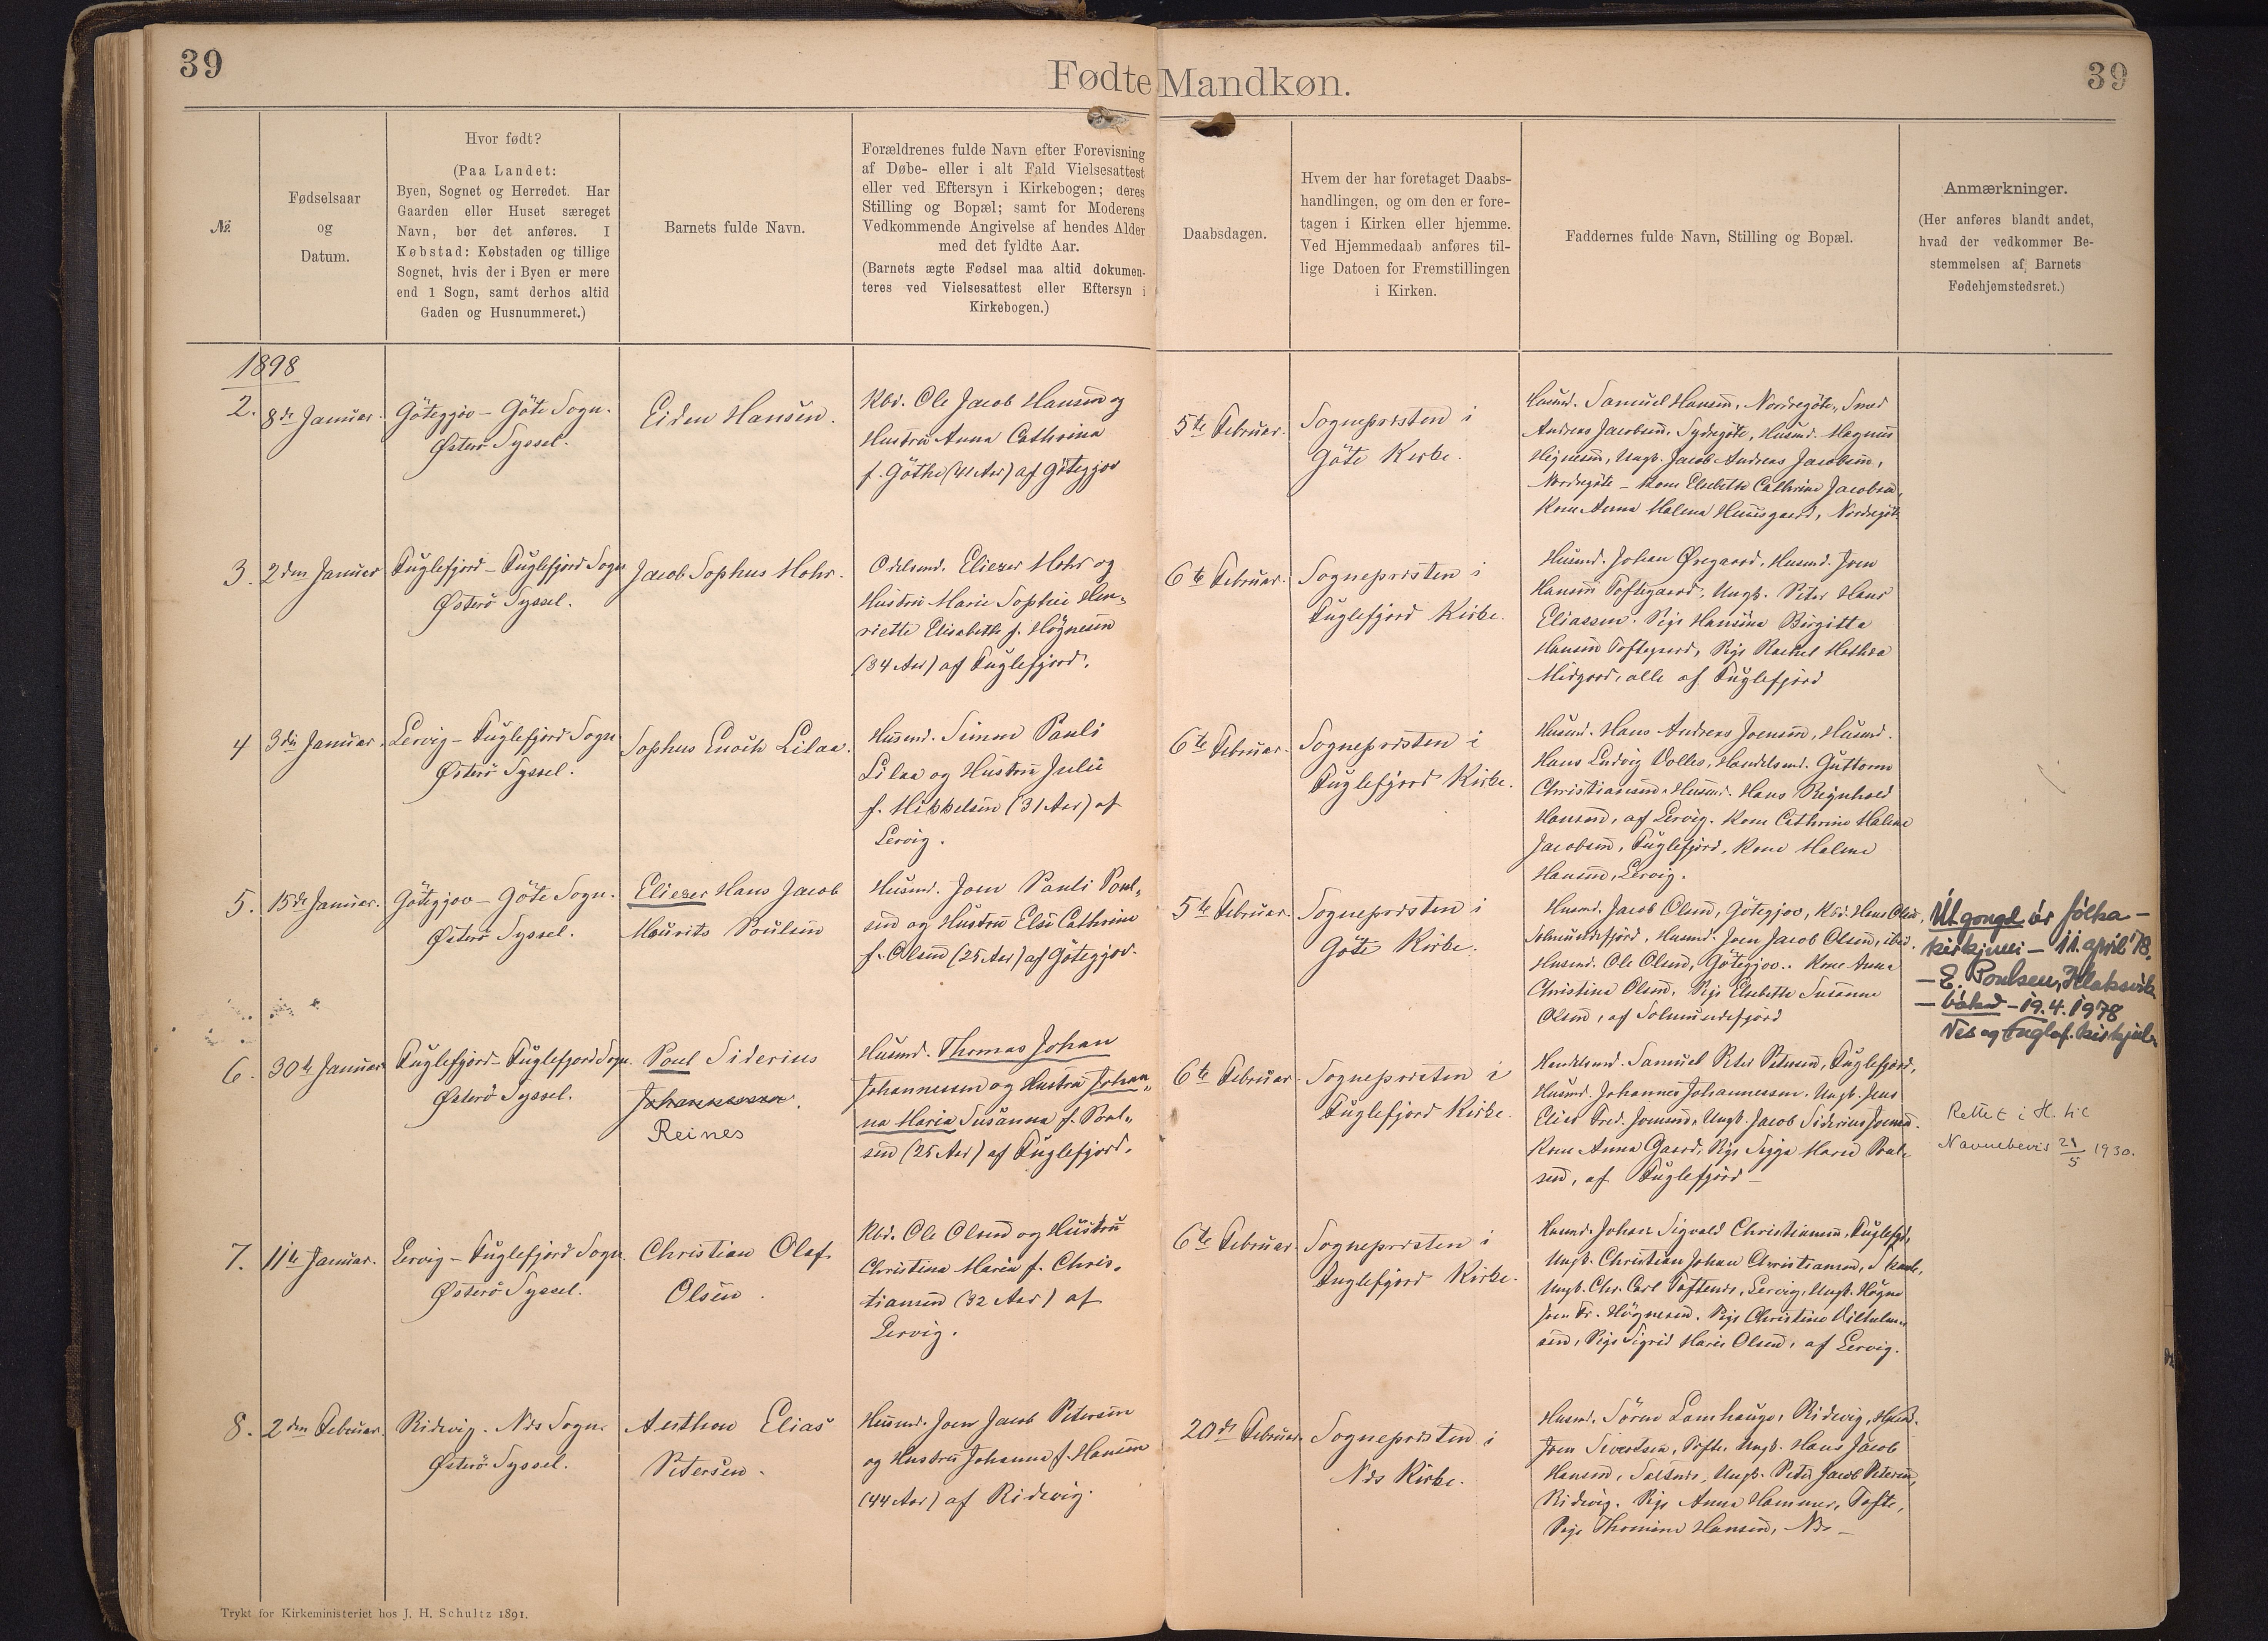 39
Fødte Mandkøn.
39
№
Fødselsaar
og
Datum.
Hvor født?
(Paa Landet:
Byen, Sognet og Herredet. Har
Gaarden eller Huset særeget
Navn, bør det anføres. I
Købstad: Købstaden og tillige
Sognet, hvis der i Byen er mere
end 1 Sogn, samt derhos altid
Gaden og Husnummeret.)
Barnets fulde Navn.
Forældrenes fulde Navn efter Forevisning
af Døbe- eller i alt Fald Vielsesattest
eller ved Eftersyn i Kirkebogen; deres
Stilling og Bopæl; samt for Moderens
Vedkommende Angivelse af hendes Alder
med det fyldte Aar.
(Barnets ægte Fødsel maa altid dokumen-
teres ved Vielsesattest eller Eftersyn i
Kirkebogen.)
Daabsdagen.
Hvem der har foretaget Daabs-
handlingen, og om den er fore-
tagen i Kirken eller hjemme.
Ved Hjemmedaab anføres til-
lige Datoen for Fremstillingen
i Kirken.
Faddernes fulde Navn, Stilling og Bopæl.
Anmærkninger.
(Her anføres blandt andet,
hvad der vedkommer Be-
stemmelsen af Barnets
Fødehjemstedsret.)
1898
2.
8de Januar.
Götegjov – Göte Sogn.
Österö Syssel.
Eiden Hansen.
Kbd. Ole Jacob Hansen og
Hustru Anna Cathrina
f. Göthe (41 Aar) af Götegjov
5te Februar.
Sognepræsten i
Göte Kirke.
Husmd. Samuel Hansen, Nordregöte, Smed
Andreas Jacobsen, Sydregöte, Husmd. Magnus
Högnesen, Ungk. Jacob Andreas Jacobsen,
Nordregöte – Kone Elsebeth Cathrine Jacobsen,
Kone Anna Malena Huusgaard, Nordregöte
3.
2den Januar
Fuglefjord – Fuglefjord Sogn
Österö Syssel.
Jacob Sophus Mohr.
Odelsmd. Eliezer Mohr og
Hustru Marie Sophie Hen-
riette Elisabeth f. Högnesen
(34 Aar) af Fuglefjord.
6te Februar.
Sognepræsten i
Fuglefjord Kirke.
Husmd. Johan Øregaard, Husmd. Joen
Hansen Toftegaard, Ungk. Peter Hans
Eliassen. Pige Hansina Birgitta
Hansen Toftegaard, Pige Rachel Mathea
Midgard, alle af Fuglefjord
4
3die Januar.
Lervig – Fuglefjord Sogn
Österö Syssel.
Sophus Enoch Lilaa.
Husmd. Simon Pauli
Lilaa og Hustru Julie
f. Mikkelsen (31 Aar) af
Lervig.
6te Februar.
Sognepræsten i
Fuglefjord Kirke.
Husmd. Hans Andreas Joensen, Husmd.
Hans Ludvig Volles, Handelsmd. Guttorm
Christiansen, Husmd. Hans Reinhold
Hansen, af Lervig. Kone Cathrine Malene
Jacobsen, Fuglefjord, Kone Malene
Hansen, Lervig.
5.
15de Januar.
Götegjov – Göte Sogn.
Österö Syssel.
Eliezer Hans Jacob
Mourits Poulsen
Husmd. Joen Pauli Poul-
sen og Hustru Else Cathrine
f. Olsen (25 Aar) af Götegjov.
5te Februar
Sognepræsten i
Göte Kirke.
Husmd. Jacob Olsen, Götegjov, Kbd. Hans Olsen,
Solmundefjord, Husmd. Joen Jacob Olsen, ibid.
Husmd. Ole Olsen, Götegjov. Kone Anna
Christina Olsen, Pige Elsebeth Susanne
Olsen, af Solmundefjord
Útgongd úr fólka-
kirkjuni – 11. apríl '78.
– E. Poulsen, Klaksvík
– bókað – 19.4.1978
Nes og Fuglaf. kirkjub.
6.
30te Januar
Fuglefjord – Fuglefjord Sogn.
Österö Syssel.
Poul Siderius
Johannesen.
Reines
Husmd. Thomas Johan
Johannesen og Hustru Johan-
na Maria Susanna f. Poul-
sen (25 Aar) af Fuglefjord.
6te Februar.
Sognepræsten i
Fuglefjord Kirke.
Handelsmd. Samuel Peter Petersen, Fuglefjord,
Husmd. Johannes Johannessen. Ungk. Jens
Elias Fred. Joensen, Ungk. Jacob Siderius Joensen.
Kone Anna Gaard, Pige Sigga Maria Poul-
sen, af Fuglefjord –
Rettet i H. t. c
Navnebevis 21/5 1930.
7.
11te Januar.
Lervig – Fuglefjord Sogn.
Österö Syssel.
Christian Olaf
Olsen.
Kbd. Ole Olsen og Hustru
Christina Maria f. Chris-
tiansen (32 Aar) af
Lervig.
6te Februar.
Sognepræsten i
Fuglefjord Kirke.
Husmd. Johan Sigvald Christiansen, Fuglefjd,
Ungk. Christian Johan Christiansen,
Ungk. Chr. Carl Toftenes, Lervig, Ungk. Högne
Joen Fr. Högnesen. Pige Christine Vilhelm-
sen, Pige Sigrid Marie Olsen, af Lervig.
8.
2den Februar.
Ridevig. Nes Sogn
Österö Syssel.
Aesthen Elias
Petersen.
Husmd. Joen Jacob Petersen
og Hustru Johanna f. Hansen
(44 Aar) af Ridevig.
20de Februar.
Sognepræsten i
Nes Kirke.
Husmd. Sörne Lamhauge, Ridevig, Husmd.
Joen Sivertsen, Tofte. Ungk. Hans Jacob
Hansen, Saltnes, Ungk. Peter Jacob Petersen,
Ridevig. Pige Anna Hammer, Tofte,
Pige Thomine Hansen, Nes –
Trykt for Kirkeministeriet hos J. H. Schultz 1891.